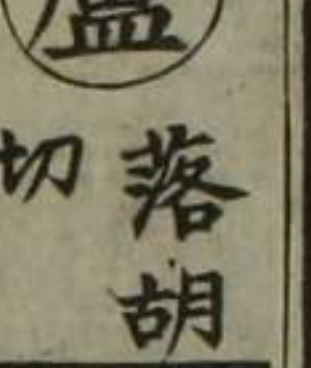 盧
落胡
切